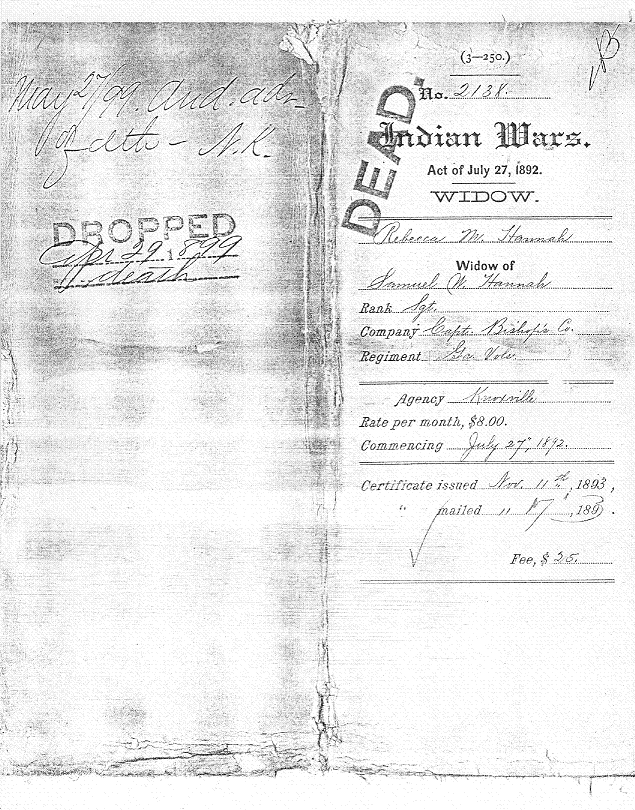 May 27/99. Aud. adv.
of dth - N.K.
DROPPED
Apr 29, 1899
death
(3—250.)
DEAD.
No. 2138.
Indian Wars.
Act of July 27, 1892.
WIDOW.
Rebecca M. Hannah
Widow of
Samuel W. Hannah
Rank Sgt.
Company Capt. Bishop's Co.
Regiment Ga Vols.
Agency Knoxville
Rate per month, $8.00.
Commencing July 27", 1892.
Certificate issued Nov. 11th, 1893,
" mailed " 17, 1893.
Fee, $ 25.